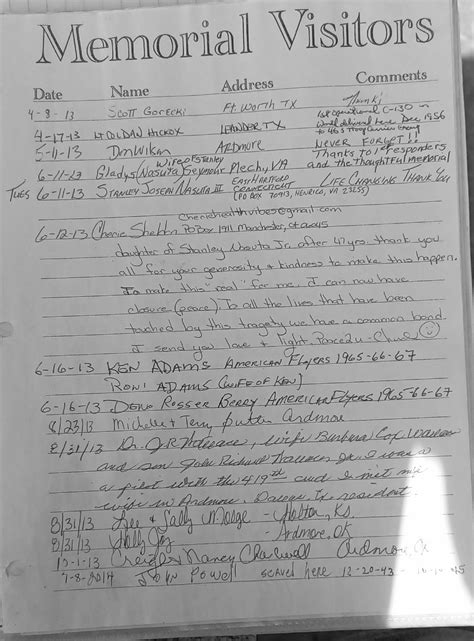 Memorial Visitors
Date Name Address Comments
4-8-13 Scott Gorecki Ft Worth TX Thanks
4-17-13 Lt Col Dan Hickox Leander TX 1st operational C-130 was delivered here Dec 1956 to 463 Troop Carrier Wing
5-11-13 Ardmore Never Forget!!
Wife of Stanley Thanks to 1st responders
6-11-13 Gladys (Nasuta) Seymour Mech, VA and the thoughtful memorial
Tues 6-11-13 Stanley Joseph Nasuta III East Hartford Connecticut Life Changing Thank You
(PO Box 70913, Henrico, VA 23255)
@gmail.com
6-12-13 Cherie Shelton PO Box 1911 Manchester, Ct 06045
daughter of Stanley Nasuta Jr. after 47 yrs. thank you
all for your generosity & kindness to make this happen.
To make this "real" for me, I can now have
closure (peace). To all the lives that have been
touched by this tragedy we have a common bond.
I send you love & light. Peace 2 u -
6-16-13 Ken Adams American Flyers 1965-66-67
Roni Adams (wife of Ken)
6-16-13 Rosser Berry American Flyers 1965-66-67
8/23/13 Michelle & Terry Ardmore
8/31/13 Dr. J R wife Barbara Cox
and son John Richard Jr. I was
a pilot with the 419th and I met my
wife in Ardmore. resident.
8/31/13 Lee & Sally - Holton, KS
8/31/13 Holly - Ardmore, OK
Nancy Ardmore, Ok
-8-2014 John Powell served here 12-20-43 - 45